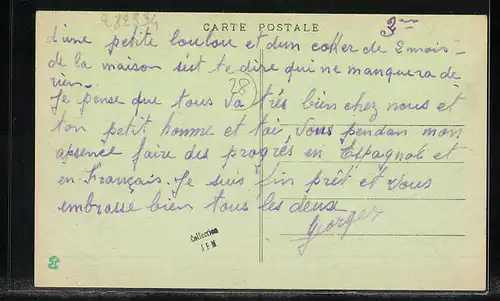 282934
CARTE POSTALE
3
d'une petite loulou et d'un coker de 2 mois -
de la maison s'est te dire qui ne manquera de
rien.
28
Je pense que tous va très bien chez nous et
ton petit homme et toi, Vous pendan mon
absence faire des progrès en Espagnol et
en Français. Je suis fin prêt et vous
embrasse bien tous les deux
Gorges
Collection
J F M